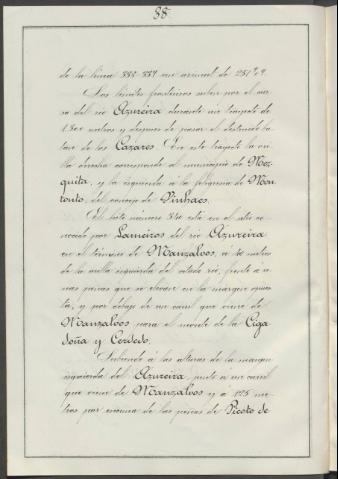 88.
de la línea 338-339 un azimut de 251°.9.
Los límites fronterizos suben por el cur
so del río Azureira durante un trayecto de
1.800 metros y después de pasar el
de los Cazares. En este trayecto la ori
lla derecha corresponde al municipio de Mez
quita, y la izquierda á la feligresía de Mon
touto, del concejo de Vinhaes.
El hito número 340 está en el sitio co
nocido por Lameiros del río Azureira
en el término de Manzalvos, á 10 metros
de la orilla izquierda del citado río, frente á u
nas peñas que se elevan en la margen opues
ta, y por debajo de un canal que viene de
Manzalvos para el monte de la Ciga
doña y Cerdedo.
Subiendo á las alturas de la margen
izquierda del Azureira, junto á un canal
que viene de Manzalvos y á 175 me
tros por encima de las peñas de Picoto de